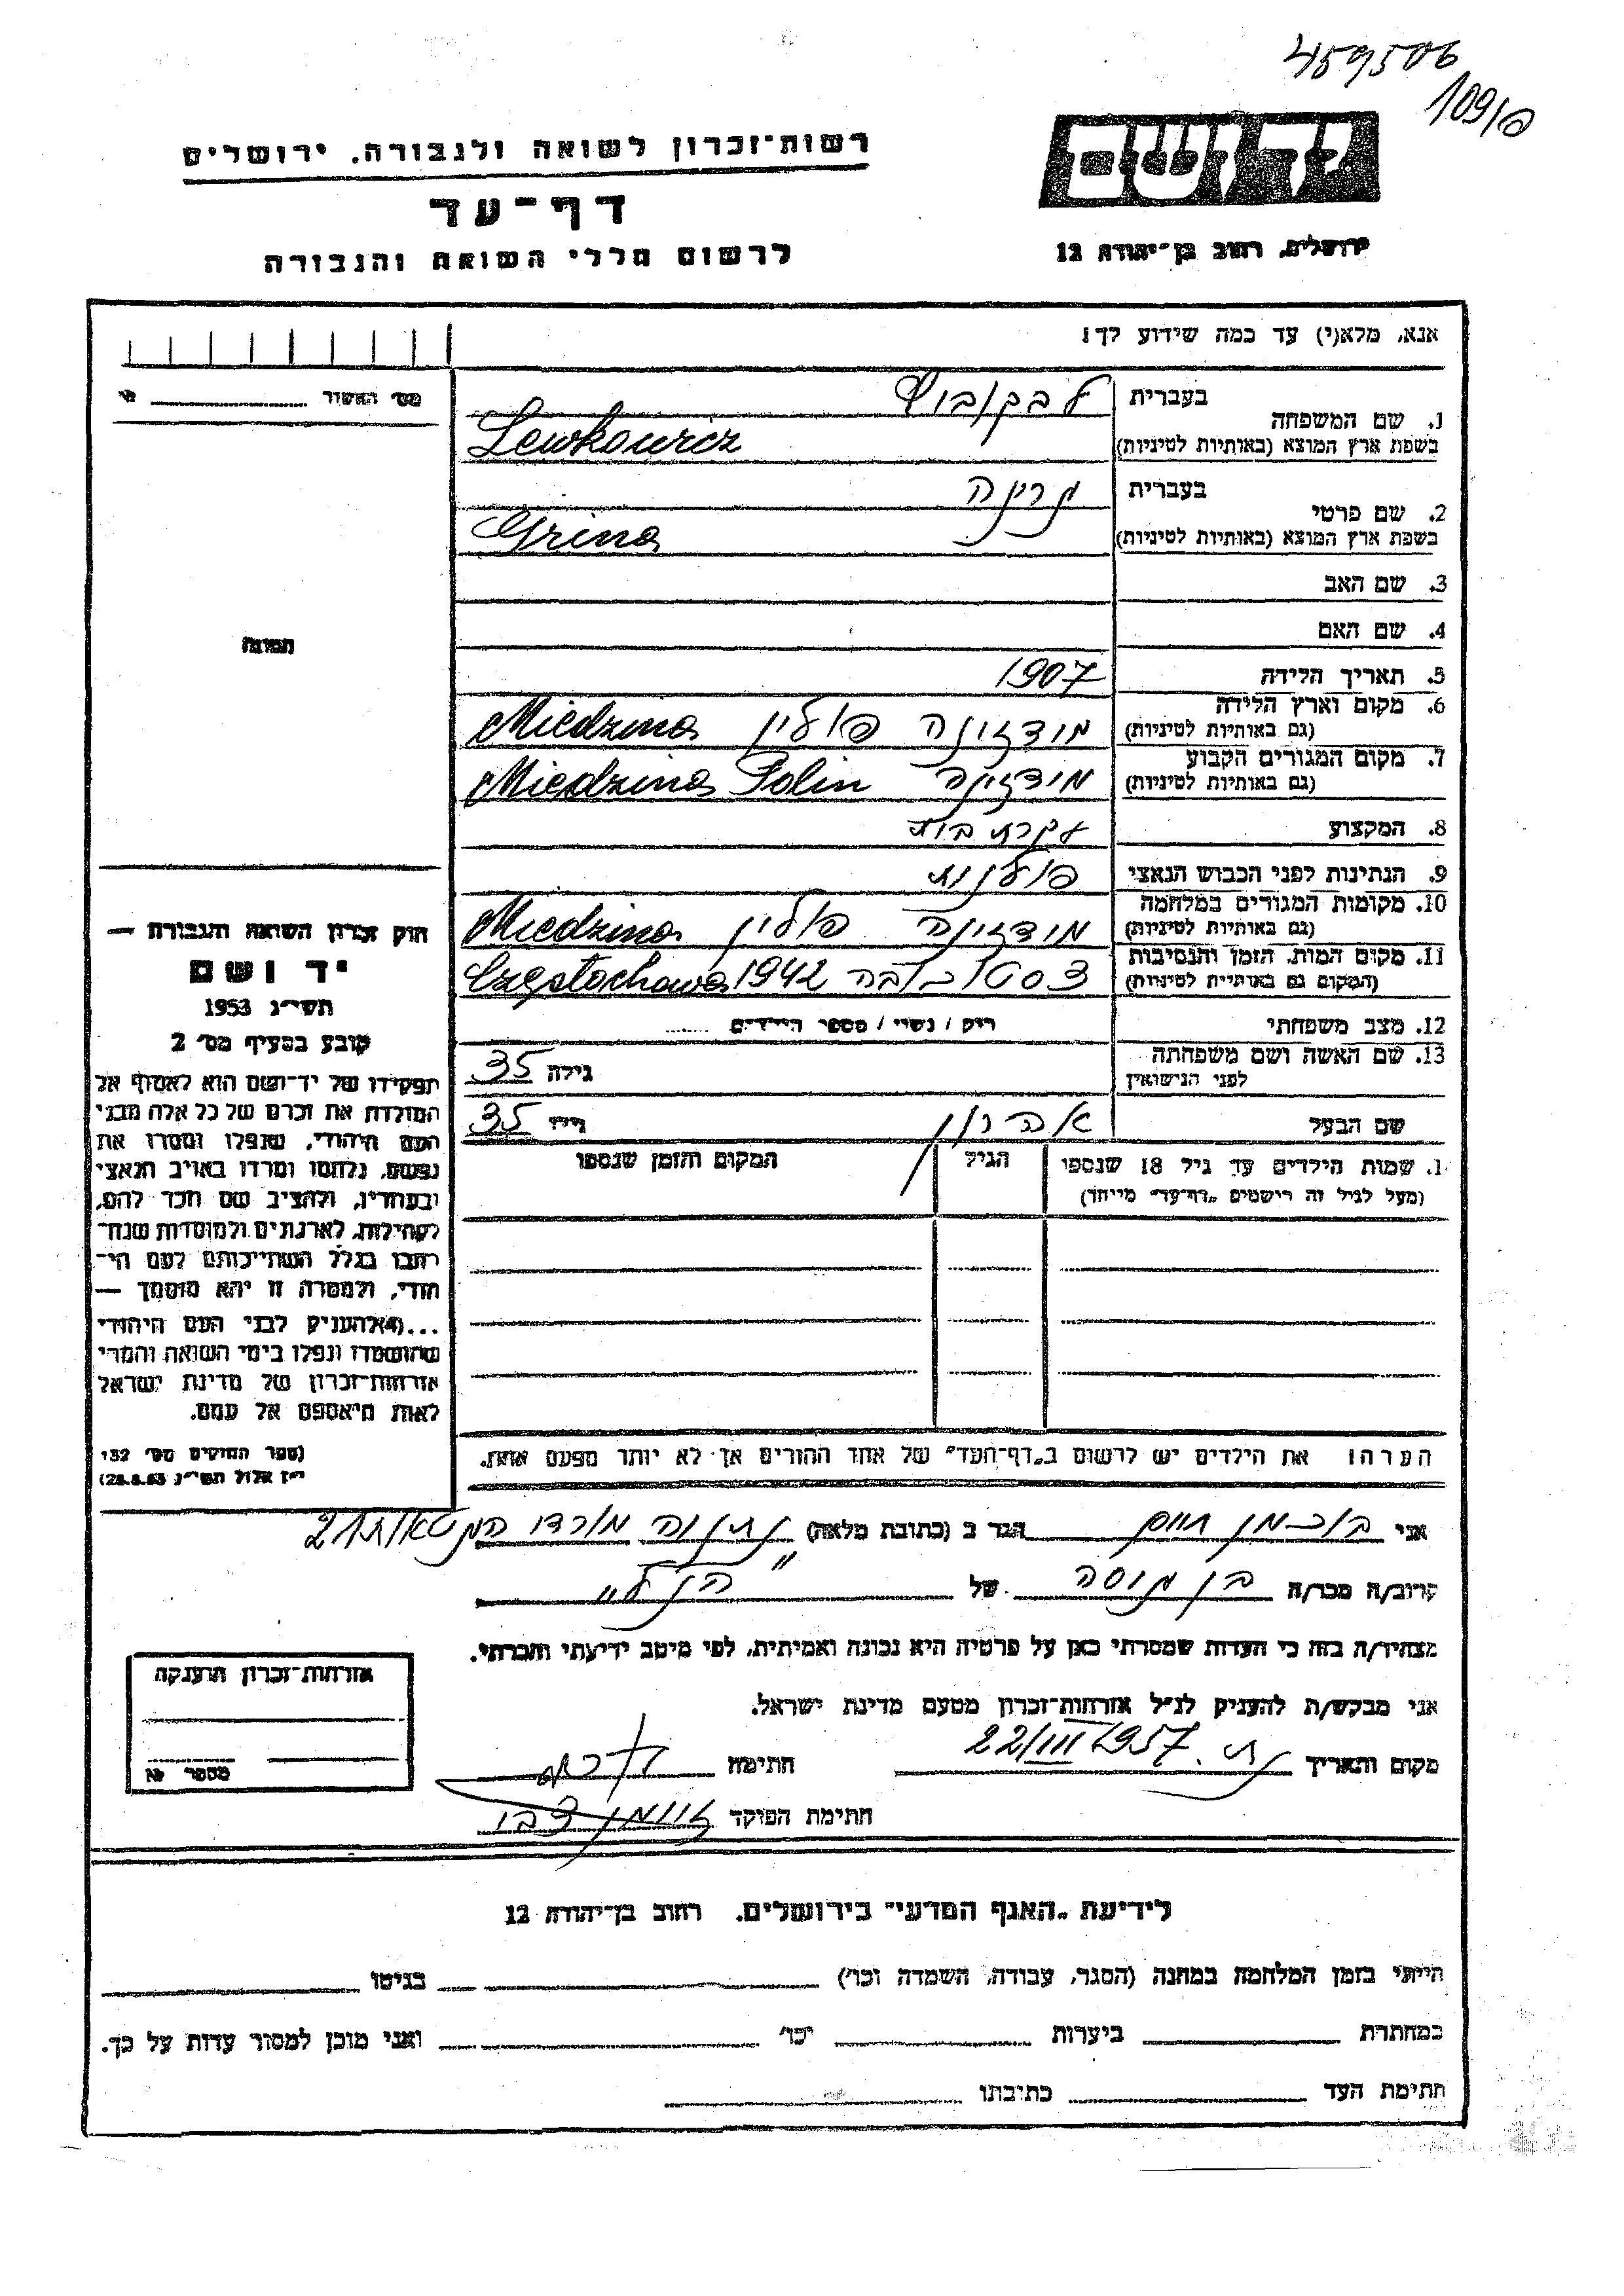 459506
109/פ
רשות־זכרון לשואה ולגבורה. ירושלים
דף־עד
לרשום חללי השואה והגבורה
ירושלים, רחוב בן־יהודה 12
אנא, מלא(י) עד כמה שידוע לך!
מס׳ האשור
1. שם המשפחה
בעברית
Lewkowicz
בשפת ארץ המוצא (באותיות לטיניות)
2. שם פרטי
בעברית
גרינה
Grina
בשפת ארץ המוצא (באותיות לטיניות)
3. שם האב
4. שם האם
תמונה
5. תאריך הלידה 1907
6. מקום וארץ הלידה
(גם באותיות לטיניות) מידזינה פולין Miedzina
7. מקום המגורים הקבוע
(גם באותיות לטיניות) מידזינה Miedzina Polin
8. המקצוע עקרת בית
9. הנתינות לפני הכבוש הנאצי פולנית
10. מקומות המגורים במלחמה
(גם באותיות לטיניות) מידזינה פולין Miedzina
11. מקום המות, הזמן והנסיבות
(המקום גם באותיות לטיניות) 1942 Częstochowa
12. מצב משפחתי רוק / נשוי / מספר הילדים
13. שם האשה ושם משפחתה
לפני הנישואין גילה 35
שם הבעל אהרון גילו 35
שמות הילדים עד גיל 18 שנספו
(מעל לגיל זה רישמים „דף־עד״ מייוחד)
הגיל
המקום והזמן שנספו
הערה: את הילדים יש לרשום ב„דף־העד״ של אחד ההורים אך לא יותר מפעם אחת.
חוק זכרון השואה והגבורה —
יד ושם
תשי״ג 1953
קובע בסעיף מס׳ 2
תפקידו של יד־ושם הוא לאסוף אל
המולדת את זכרם של כל אלה מבני
העם היהודי, שנפלו ומסרו את
נפשם, נלחמו ומרדו באויב הנאצי
ובעוזריו, ולהציב שם וזכר להם,
לקהילות, לארגונים ולמוסדות שנח־
רבו בגלל השתייכותם לעם היהו־
הודי, ולמטרה זו יהא מוסמך —
...(4) להעניק לבני העם היהודי
שהושמדו ונפלו בימי השואה והמרי
אזרחות־זכרון של מדינת ישראל
לאות היאספם אל עמם.
(ספר החוקים מס׳ 132
י״ז אלול תשי״ג 28.8.53)
אני הגר ב (כתובת מלאה) נתניה
קרוב/ה מכר/ה של הנ״ל
מצהיר/ה בזה כי העדות שמסרתי כאן על פרטיה היא נכונה ואמיתית, לפי מיטב ידיעתי והכרתי.
אני מבקש/ת להעניק לנ״ל אזרחות־זכרון מטעם מדינת ישראל.
מקום ותאריך 22/III 1957 חתימה
חתימת הפוקד
אזרחות־זכרון הוענקה
מספר №
לידיעת „האגף המדעי״ בירושלים. רחוב בן־יהודה 12
הייתי בזמן המלחמה במחנה (הסגר, עבודה, השמדה וכו׳) בגיטו
במחתרת ביערות וכו׳ ואני מוכן למסור עדות על כך.
חתימת העד כתובתו